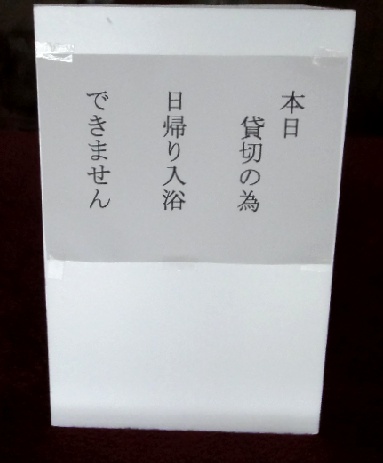 本日
貸切の為
日帰り入浴
できません